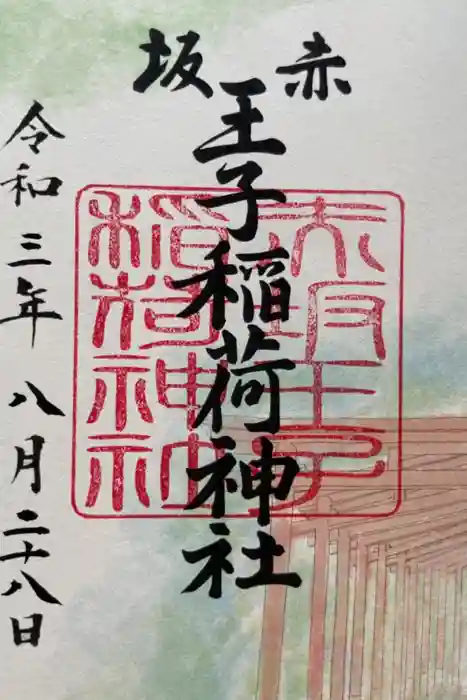 赤坂
王子稲荷神社
令和三年八月二十八日
大坂王子
稲荷神社